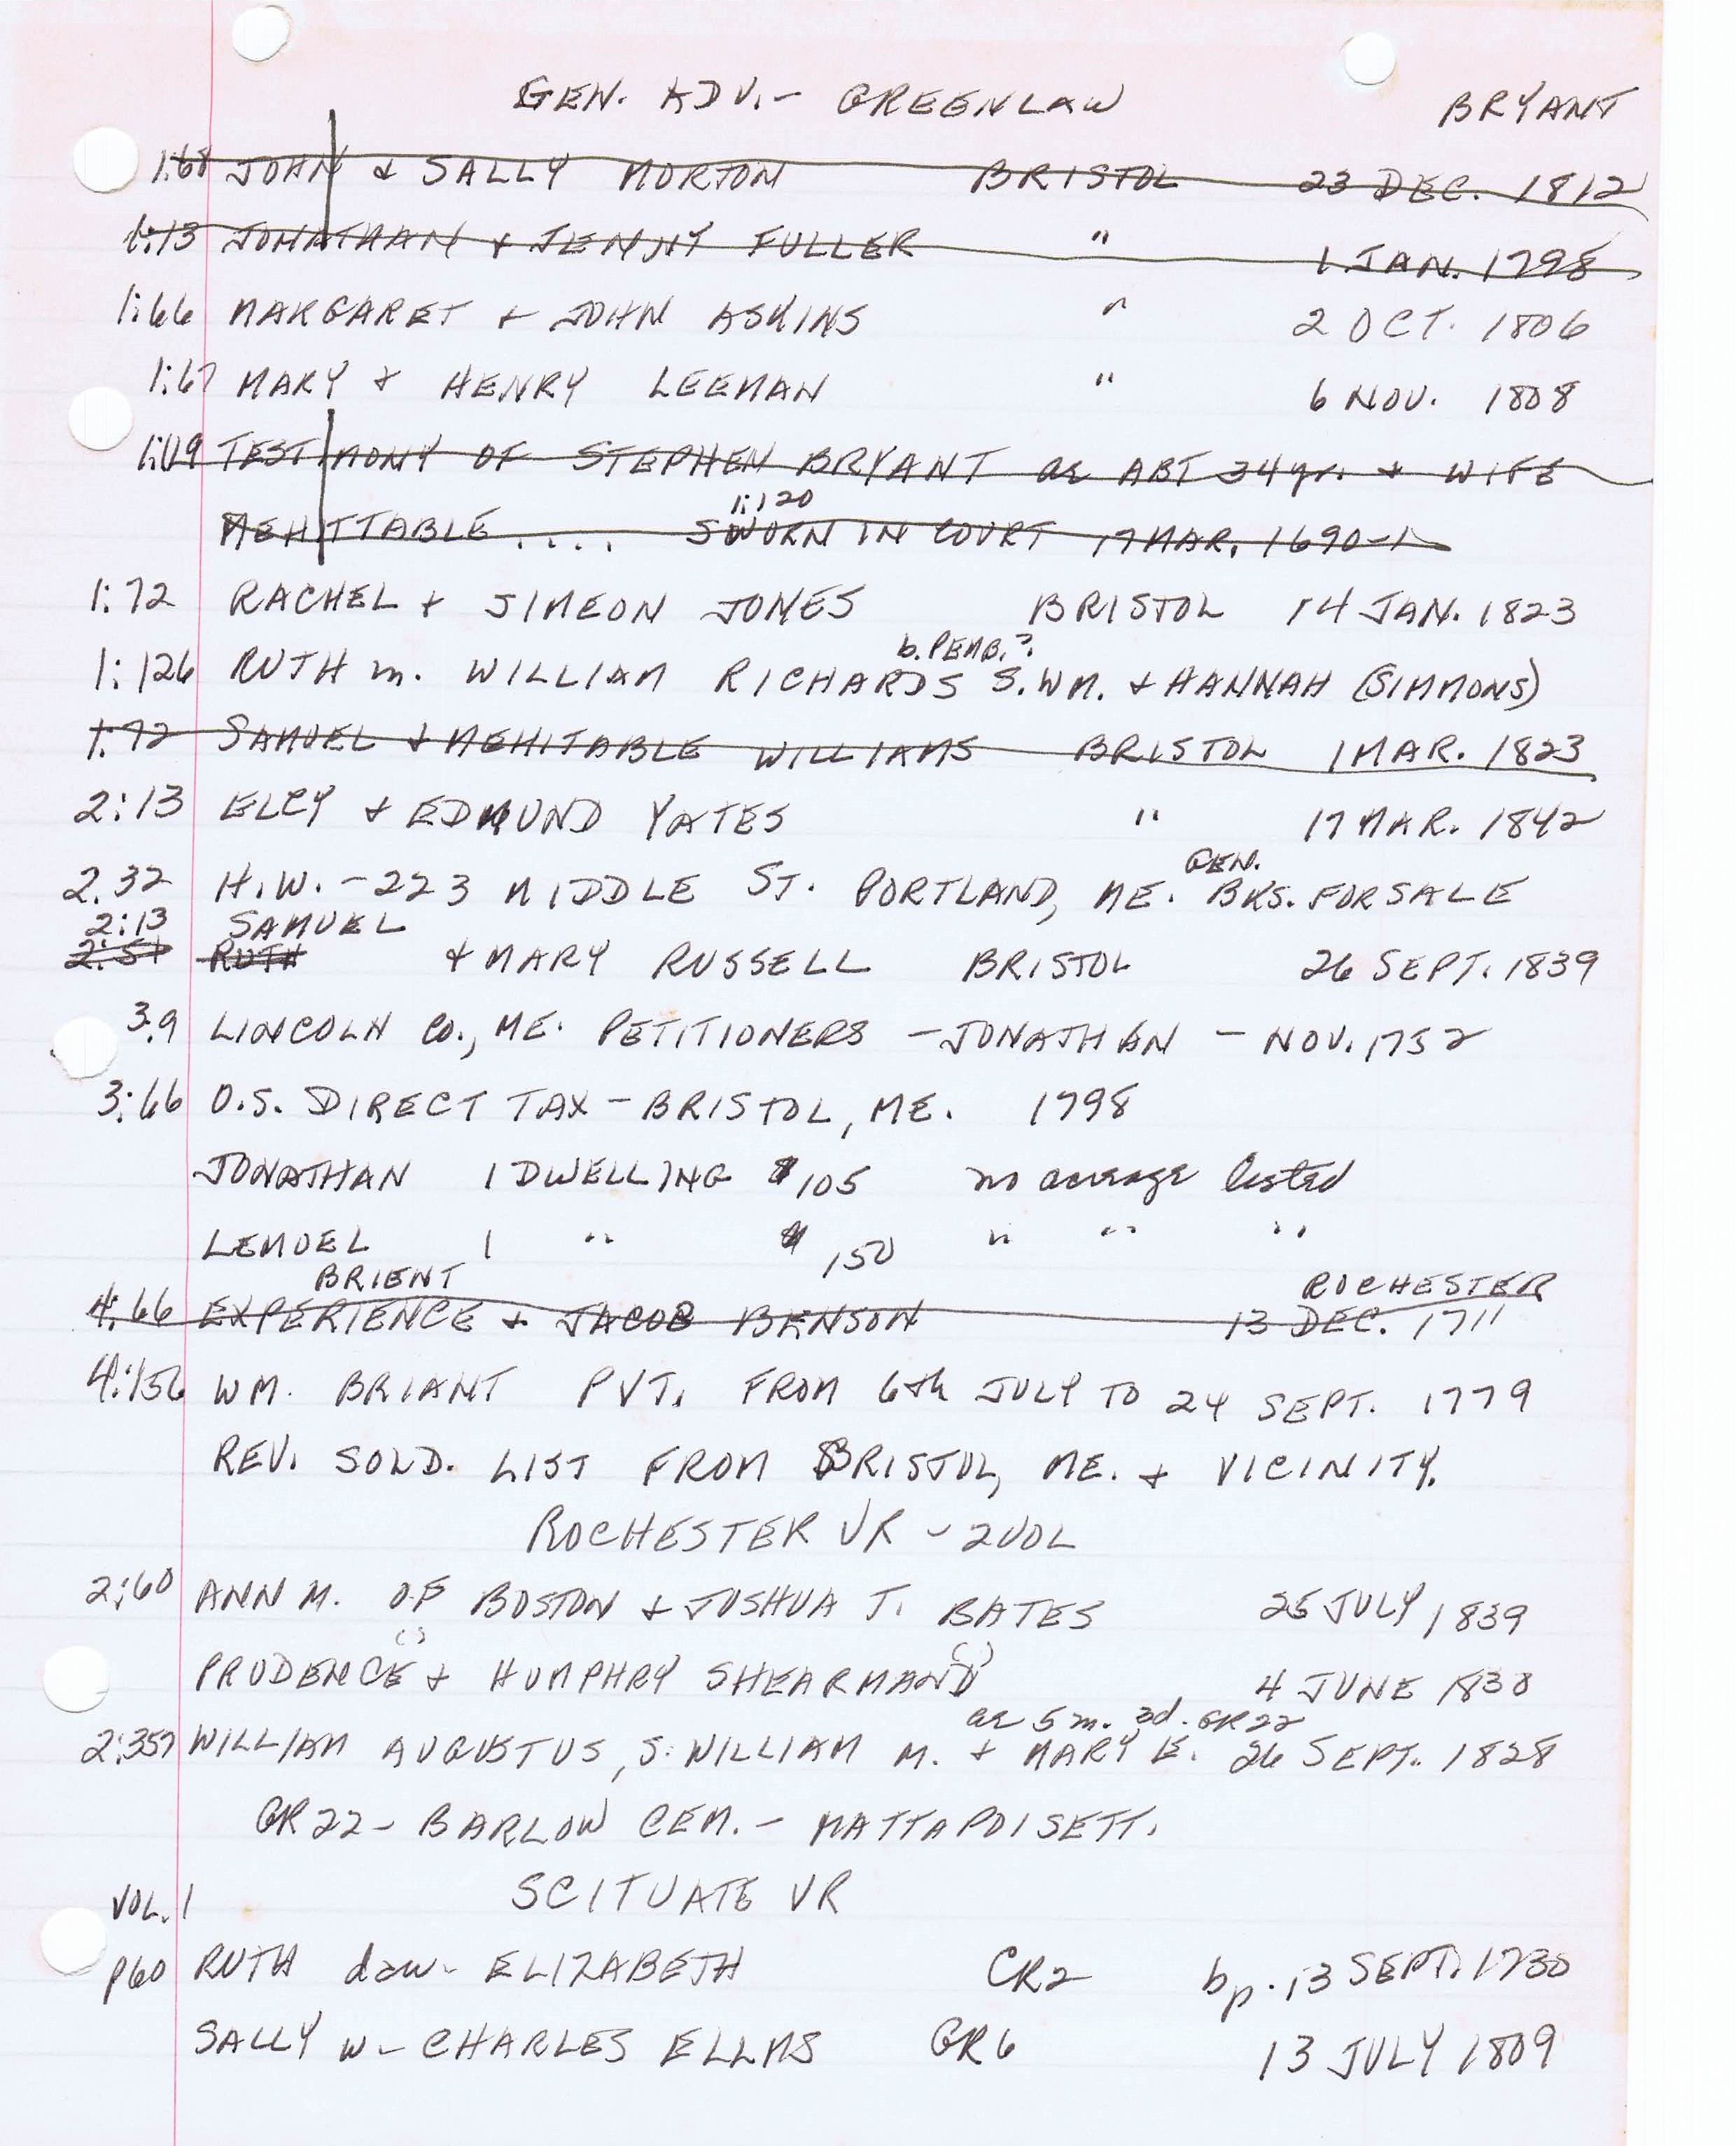 GEN. ADV. - GREENLAW BRYANT
1:68 JOHN & SALLY MORTON BRISTOL 23 DEC. 1812
1:13 JONATHAN & JENNY FULLER " 1 JAN. 1798
1:66 MARGARET & JOHN ASKINS " 2 OCT. 1806
1:67 MARY & HENRY LEEMAN " 6 NOV. 1808
1:119 TESTIMONY OF STEPHEN BRYANT ae ABT 34 yrs. & WIFE
1:120
MEHITTABLE .... SWORN IN COURT 17 MAR. 1690-1
1:72 RACHEL & SIMEON JONES BRISTOL 14 JAN. 1823
b. PEMB.?
1:126 RUTH m. WILLIAM RICHARDS S. WM. & HANNAH (SIMMONS)
1:72 SAMUEL & MEHITABLE WILLIAMS BRISTOL 1 MAR. 1823
2:13 ELCY & EDMUND YATES " 17 MAR. 1842
GEN.
2.32 H.W. - 223 MIDDLE ST. PORTLAND, ME. BKS. FOR SALE
2:13 SAMUEL
2:51 RUTH & MARY RUSSELL BRISTOL 26 SEPT. 1839
3.9 LINCOLN CO., ME. PETITIONERS - JONATHAN - NOV. 1752
3:66 O.S. DIRECT TAX - BRISTOL, ME. 1798
JONATHAN 1 DWELLING $105 no acreage listed
LEMUEL 1 " $150 " " "
BRIENT ROCHESTER
4:66 EXPERIENCE & JACOB BENSON 13 DEC. 1711
4:156 WM. BRIANT PVT. FROM 6th JULY TO 24 SEPT. 1779
REV. SOLD. LIST FROM BRISTOL, ME. & VICINITY.
ROCHESTER VR - 2 VOL
2:60 ANN M. OF BOSTON & JOSHUA T. BATES 25 JULY 1839
( ) ( )
PRUDENCE & HUMPHRY SHEARMAND 4 JUNE 1830
ae 5 m. 3d. GR22
2:357 WILLIAM AUGUSTUS, S. WILLIAM M. & MARY E. 26 SEPT. 1828
GR22 - BARLOW CEM. - MATTAPOISETT.
SCITUATE VR
VOL. 1
p60 RUTH dau - ELIZABETH CR2 bp. 13 SEPT. 1730
SALLY w - CHARLES ELLMS GR6 13 JULY 1809